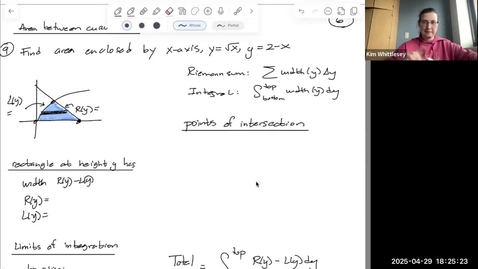 Area between curv
6
9 Find area enclosed by x-axis, y=√x, y=2-x
Riemann sum: ∑ width(y) Δy
Integral: ∫ top bottom width(y) dy
L(y)
=
R(y)=
points of intersection
rectangle at height y has
width R(y)-L(y)
R(y)=
L(y)=
Limits of integration
Total = ∫ top R(y)-L(y) dy
Kim Whittlesey
2025-04-29 18:25:23